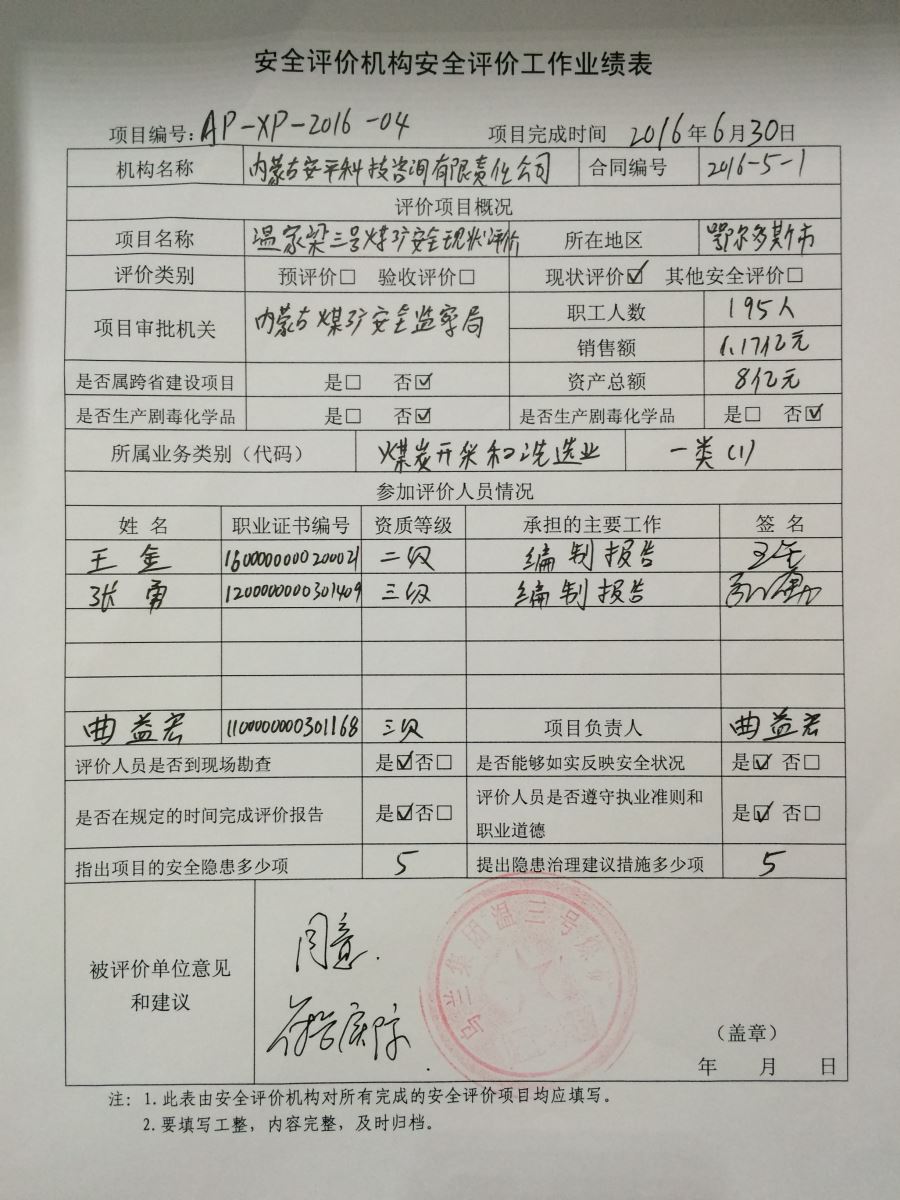 安全评价机构安全评价工作业绩表
项目编号: AP-XP-2016-04 项目完成时间 2016年6月30日
机构名称 内蒙古安平科技咨询有限责任公司 合同编号 2016-5-1
评价项目概况
项目名称 温家梁三号煤矿安全现状评价 所在地区 鄂尔多斯市
评价类别 预评价□ 验收评价□ 现状评价☑ 其他安全评价□
项目审批机关 内蒙古煤矿安全监察局 职工人数 195人
销售额 1.17亿元
是否属跨省建设项目 是□ 否☑ 资产总额 8亿元
是否生产剧毒化学品 是□ 否☑ 是否生产剧毒化学品 是□ 否☑
所属业务类别（代码） 煤炭开采和洗选业 一类(1)
参加评价人员情况
姓 名 职业证书编号 资质等级 承担的主要工作 签 名
王金 1600000000200021 二级 编制报告 王金
张勇 1200000000301409 三级 编制报告
曲益宏 1100000000301168 三级 项目负责人 曲益宏
评价人员是否到现场勘查 是☑否□ 是否能够如实反映安全状况 是☑ 否□
是否在规定的时间完成评价报告 是☑否□ 评价人员是否遵守执业准则和
职业道德 是☑ 否□
指出项目的安全隐患多少项 5 提出隐患治理建议措施多少项 5
被评价单位意见
和建议
同意.
乌兰集团温三号煤矿
（盖章）
年 月 日
注：1.此表由安全评价机构对所有完成的安全评价项目均应填写。
2.要填写工整，内容完整，及时归档。